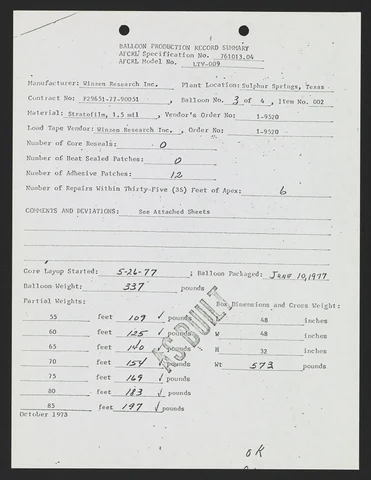 BALLOON PRODUCTION RECORD SUMMARY
AFCRL Specification No. 761013.04
AFCRL Model No. LTV-009
Manufacturer: Winzen Research Inc. Plant Location: Sulphur Springs, Texas
Contract No: F29651-77-90051, Balloon No. 3 of 4, Item No. 002
Material: Stratofilm, 1.5 mil, Vendor's Order No: 1-9520
Load Tape Vendor: Winzen Research Inc., Order No: 1-9520
Number of Gore Reseals: 0
Number of Heat Sealed Patches: 0
Number of Adhesive Patches: 12
Number of Repairs Within Thirty-Five (35) Feet of Apex: 6
COMMENTS AND DEVIATIONS: See Attached Sheets
Gore Layup Started: 5-26-77; Balloon Packaged: JUNE 10, 1977
Balloon Weight: 337 pounds
Partial Weights: Box Dimensions and Gross Weight:
55 feet 109 √ pounds 48 inches
60 feet 125 √ pounds W 48 inches
65 feet 140 √ pounds H 32 inches
70 feet 154 √ pounds Wt 573 pounds
75 feet 169 √ pounds
80 feet 183 √ pounds
85 feet 197 √ pounds
AS BUILT
October 1973
OK